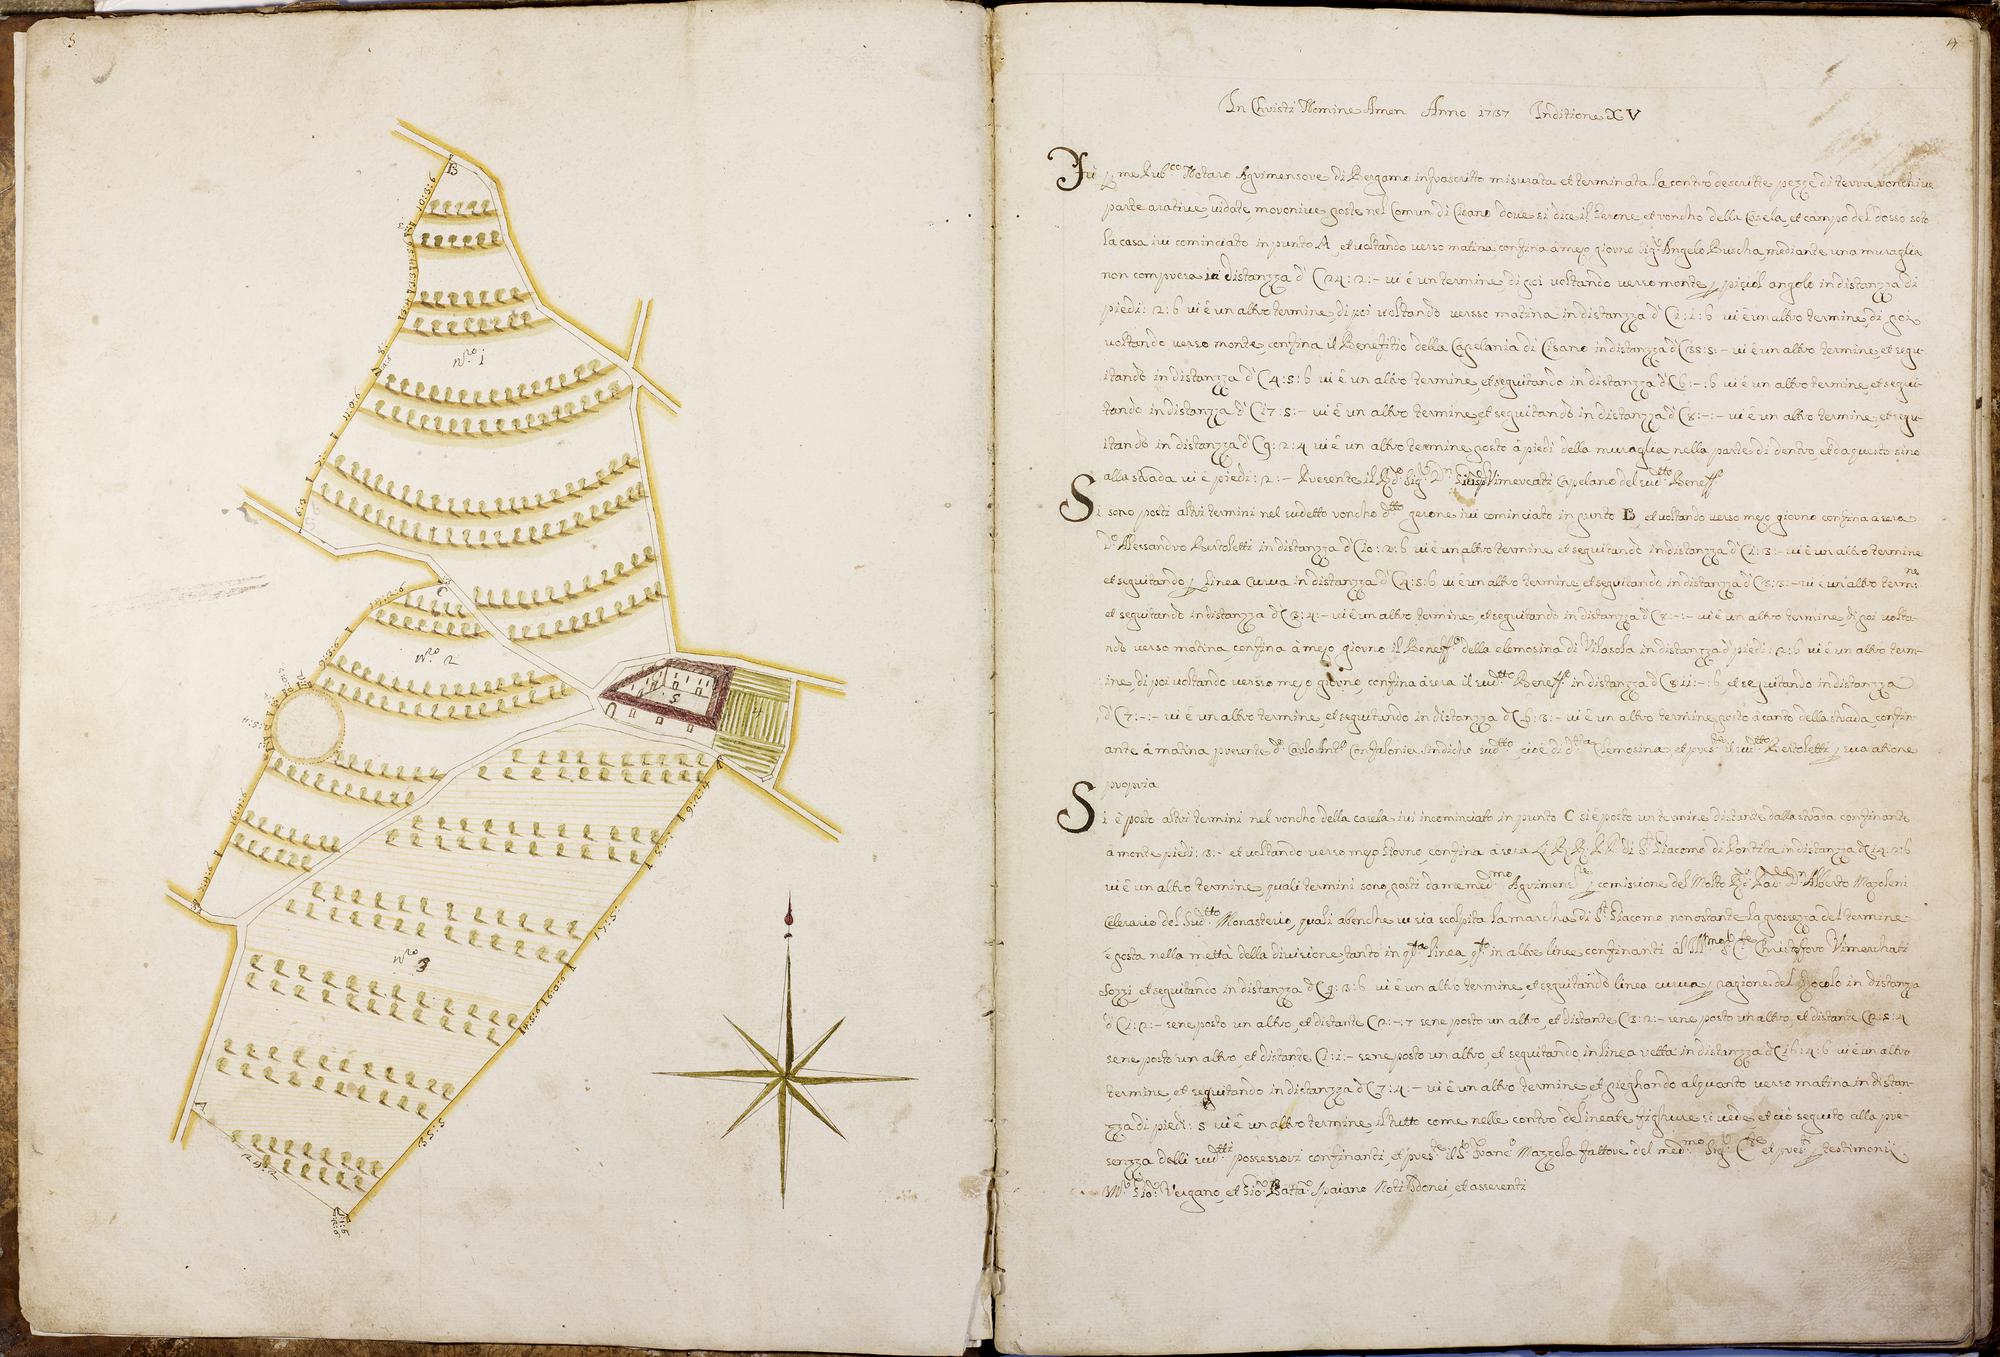 3
B
10:3:6
Nro i
11:0:6
C
14:2:6
9:3:6
Nro 2
16:4:6
7:4:6
5
4
A
9:2:4
8:-
17:5:
6:0:6
4:5:6
Nro 3
35:5
24:2
4
In Christi Nomine Amen Anno 1737 Inditione XV
Fù p me Pubco Notaro Agrimensore di Bergamo infrascritto misurata et terminata la controdescritte pezze di terra ronchive
parte arative vidate moronive poste nel Comun di Cisano dove si dice il Gerone et roncho della Casela, et campo del dosso soto
la casa ivi cominciato in punto A, et voltando verso matina confina à mezo giorno Sigr Angelo Buscha mediante una muraglia
non compresa in distanzza d' C 24:2:- vi è un termine, di poi voltando verso monte p picciol angolo in distanzza di
piedi: 2:6 vi è un altro termine, di poi voltando versso matina in distanzza d' C 1:1:6 vi è un altro termine, di poi
voltando verso monte confina il Benefitio della Capelania di Cisano in distanzza d' C 35:5:- vi è un altro termine, et sequ-
itando in distanzza d' C 4:5:6 vi è un altro termine, et seguitando in distanzza d' C 6:-:6 vi è un altro termine, et segui-
tando in distanzza d' C 17:5:- vi è un altro termine, et seguitando in distanzza d' C 8:-:- vi è un altro termine, et segu-
itando in distanzza d' C 9:2:4 vi è un altro termine posto à piedi della muraglia nella parte di dentro, et da questo sino
alla strada vi è piedi: 2:- Presente il Rdo Sigr Dn Giusp Vimercati Capelano del sudtto Beneffo
Si sono posti altri termini nel sudetto roncho dtto gerone ivi cominciato in punto B, et voltando verso mezo giorno confina à sera
Do Alessandro Bertoletti in distanzza d' C 10:2:6 vi è un altro termine et seguitando in distanzza d' C 1:3:- vi è un altro termine
et seguitando p linea curva in distanzza d' C 4:5:6 vi è un altro termine, et seguitando in distanzza d' C 3:3:- vi è un altro termine
et seguitando in distanzza d C 3:4:- vi è un altro termine, et seguitando in distanzza d' C 8:-:- vi è un altro termine, di poi volta-
ndo verso matina, confina à mezo giorno il Beneffo della elemosina di Vilasola in distanzza d' piedi: 2:6 vi è un altro term-
ine, di poi voltando versso mezo giorno, confina à sera il sudtto Beneffo in distanzza d C 8:11:-:6, et seguitando in distanzza
d' C 7:-:- vi è un altro termine, et seguitando in distanzza d C 6:3:- vi è un altro termine posto à canto della strada, confin-
ante à matina presente do Carlo Anto Confalonier Sindicho sudtto, cioè di dtta Elemosina, et preste il sudtto Bertoletti p sua atione
propria
Si è posto altri termini nel roncho della casela ivi incominciato in punto C si è posto un termine distante dalla strada confinante
à monte piedi: 3:- et voltando verso mezo Giorno, confina à sera L. R. R. P. P. di St Giacomo di Pontita in distanzza d C 14:2:6
vi è un altro termine, quali termini sono posti da me medmo Agrimensre p comissione del Molto Rdo Pad Dn Alberto Mazoleni
Celerario del Sudtto Monasterio, quali abenche vi sia scolpita la marcha di St Giacomo nonostante la grossezza del termine
è posta nella mettà della divisione, tanto in qta linea, qto in altre linee confinanti al Illmo Sr Cte Christoforo Vimerchati
Sozzi, et seguitando in distanzza d C 9:3:6 vi è un altro termine, et seguitando linea curva p ragione del Rocolo in distanzza
d' C 1:2:- sene posto un altro, et distante C 2:-:7 sene posto un altro, et distante C 3:2:- sene posto un altro, et distante C 2:5:4
sene posto un altro, et distante C 1:1:- sene posto un altro, et seguitando, in linea retta in distanzza d C 16:4:6 vi è un altro
termine, et seguitando in distanzza d C 7:4:- vi è un altro termine, et pieghando alquanto verso matina in distan-
zza di piedi: 5 vi è un altro termine, il tutto come nelle contro delineate fighure si vede, et ciò seguito alla pre-
senzza delli sudtti possessori confinanti, et preste il Sr Franco Mazzola fattore del medmo Sigr Cte et prest p testimonii
Mr Gioo Vergano, et Gioo Batta Spaiano Noti Idonei, et asserenti